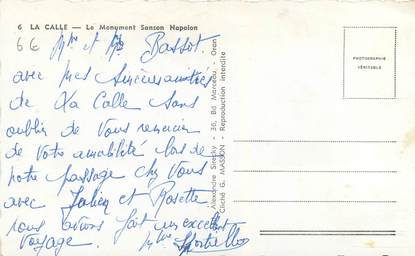 6 LA CALLE — Le Monument Sanson Napolon
66
Mme et Mr Bassot.
avec mes sincères amitiés
de La Calle sans
oublier de vous remercier
de votre amabilité lors de
notre passage chez vous
avec Julien et Rosette
nous avons fait un excellent
voyage.
Mme
Alexandre Siretky - 36, Bd Marceau - Oran
Cliché G. MASSON - Reproduction interdite
PHOTOGRAPHIE
VÉRITABLE